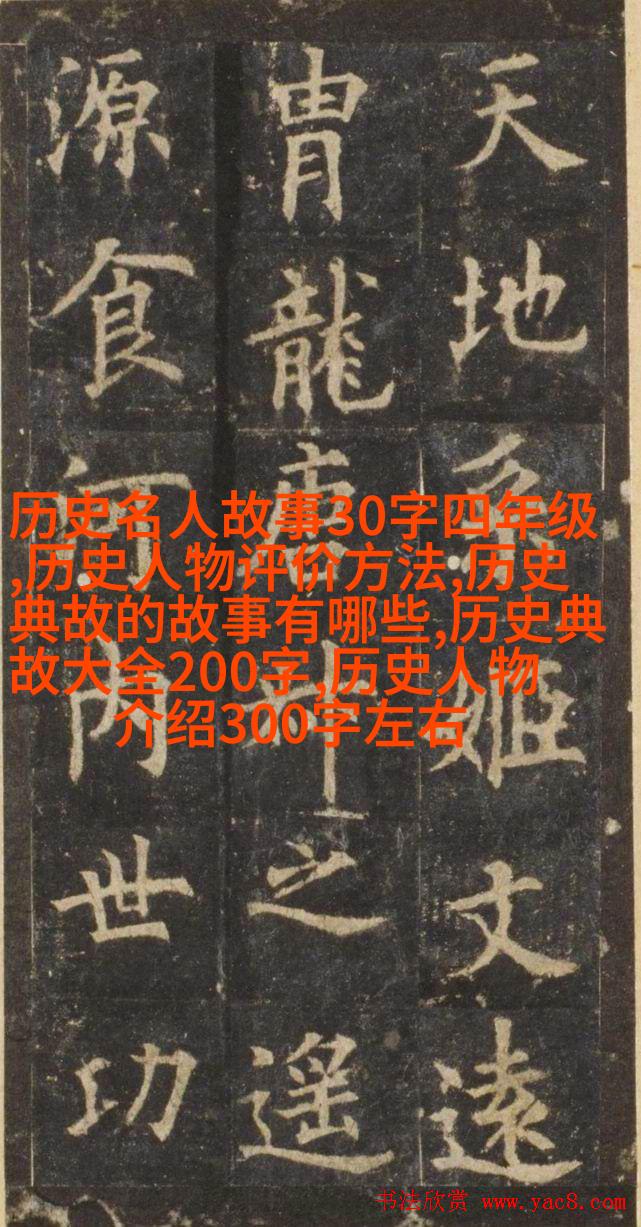 天地系姬文遠
胄龍之遥
源食河内世功
历史名人故事30字四年级
,历史人物评价方法,历史
典故的故事有哪些,历史典
故大全200字,历史人物
介绍300字左右
书法欣赏 www.yac8.com